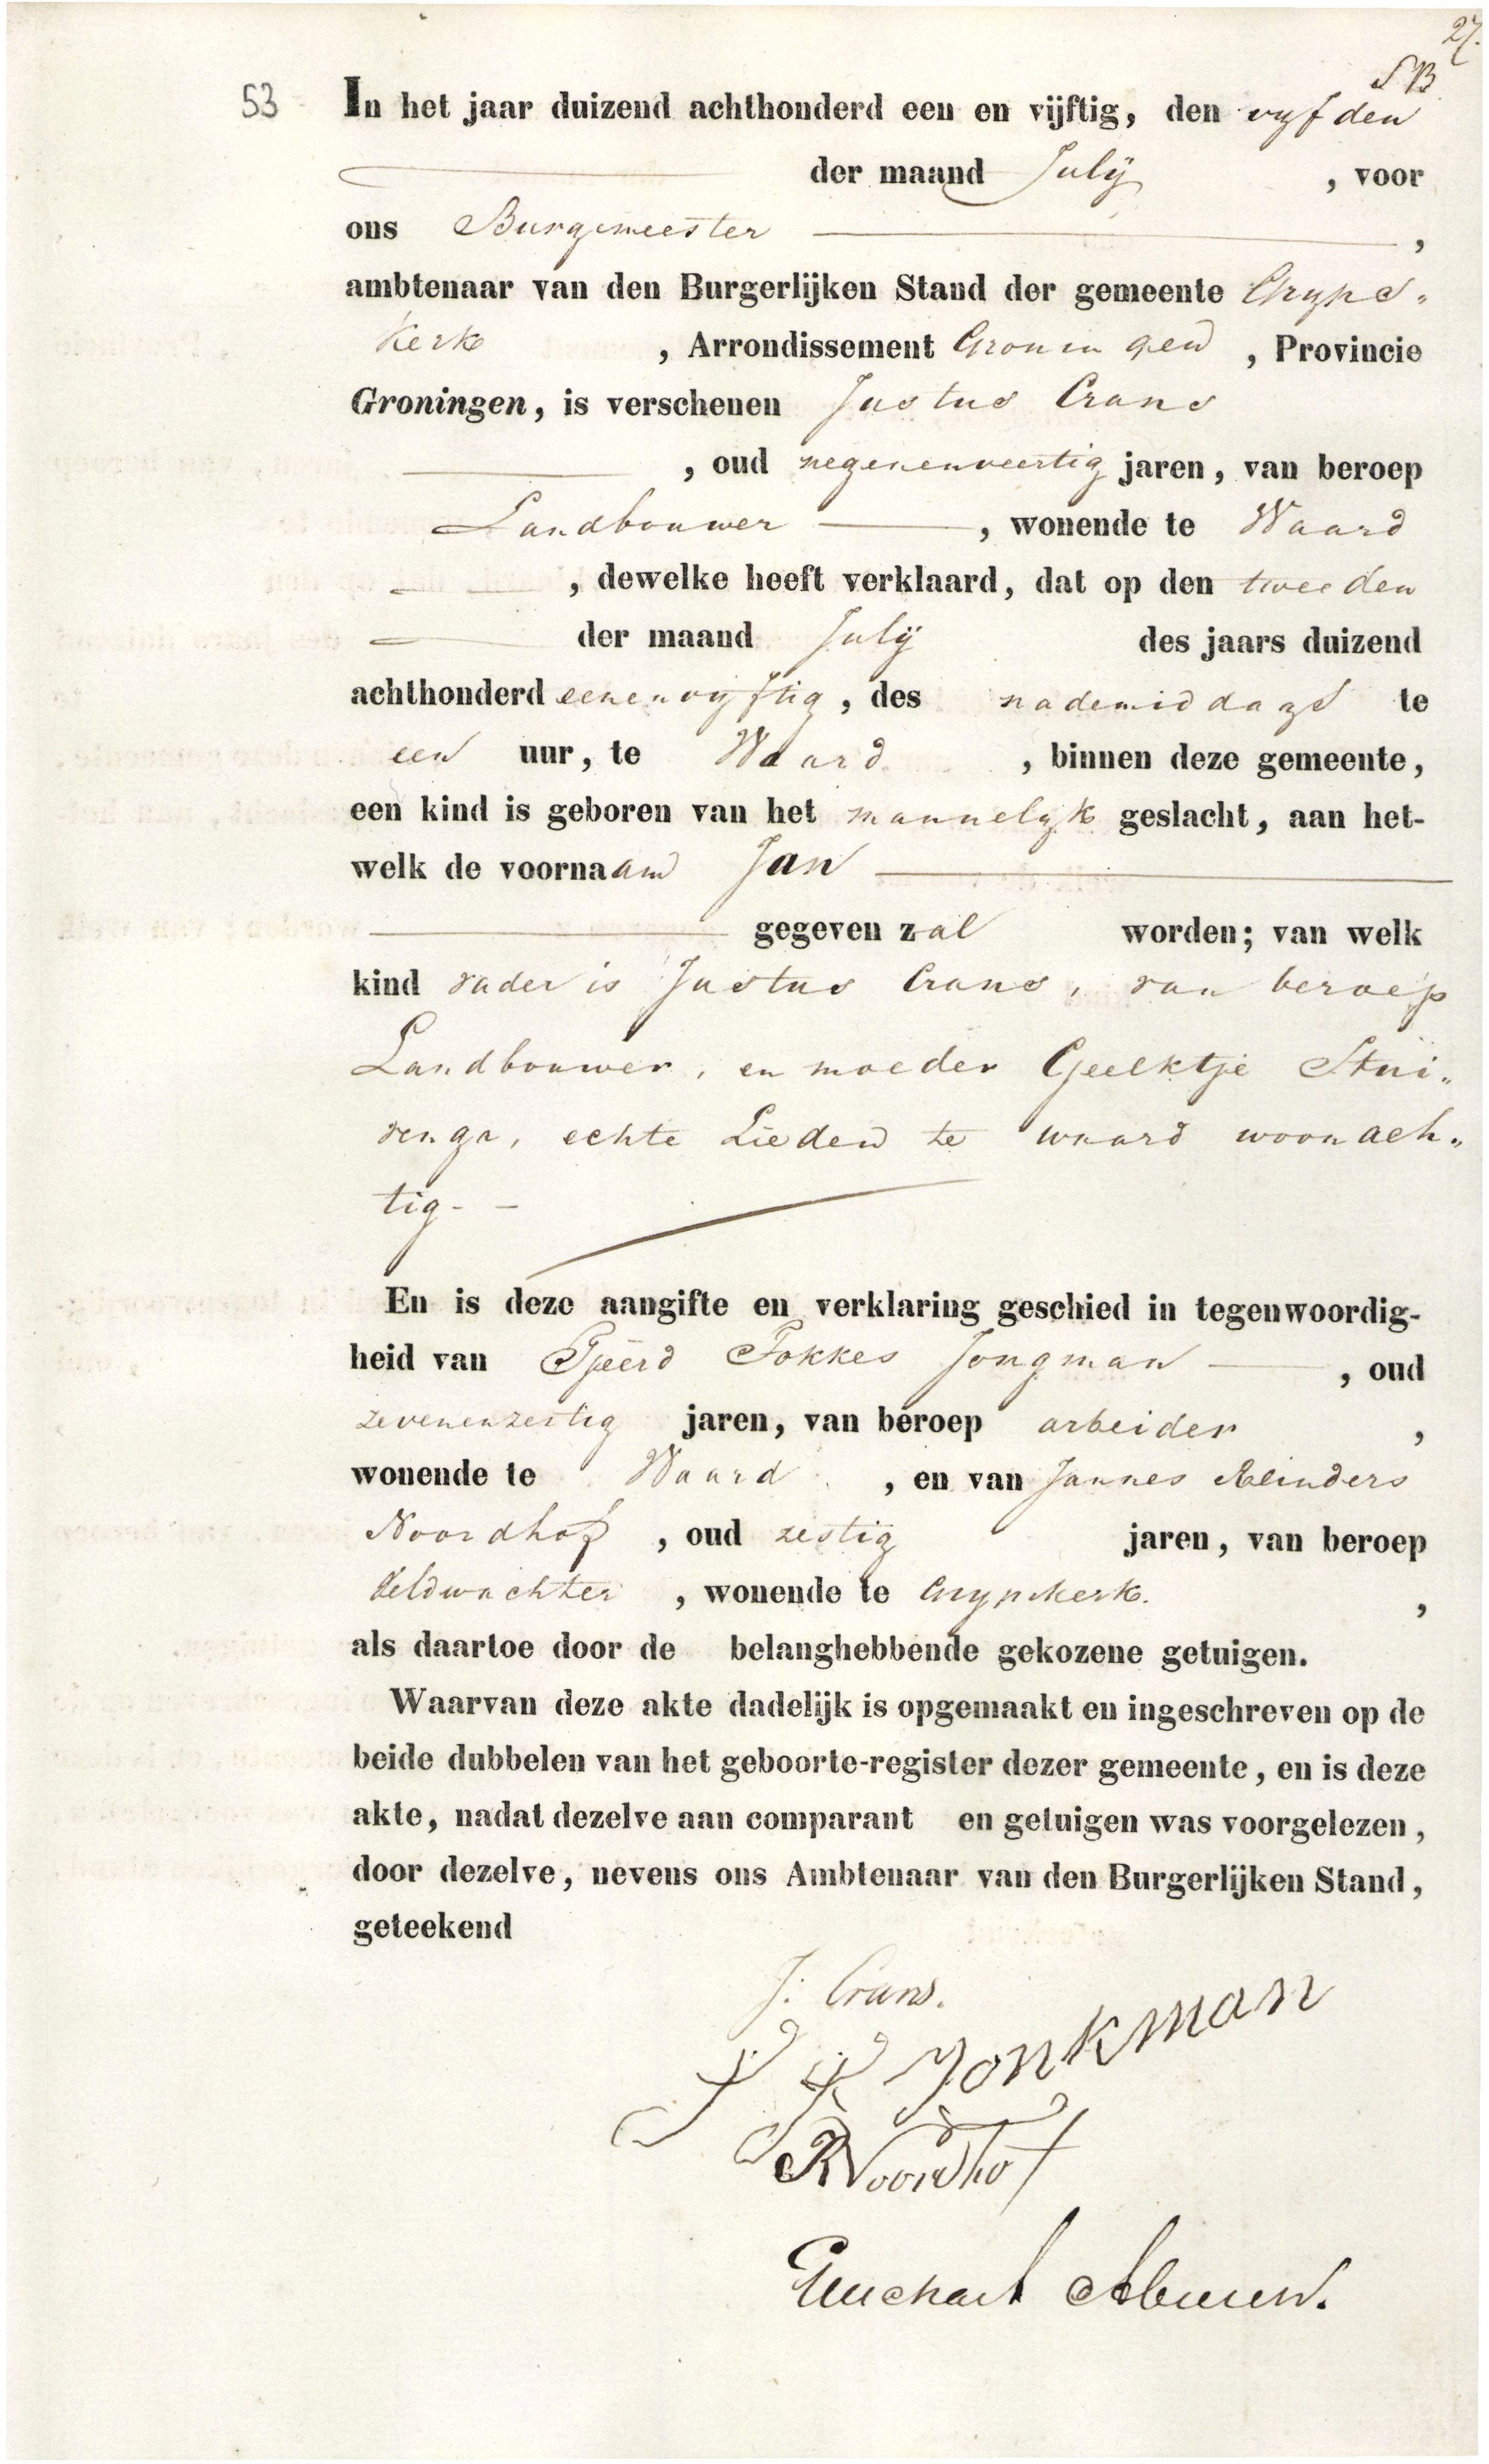 27.
SB
53 In het jaar duizend achthonderd een en vijftig, den vyfden
der maand July , voor
ons Burgemeester ,
ambtenaar van den Burgerlijken Stand der gemeente Gryps„
kerk , Arrondissement Groningen , Provincie
Groningen, is verschenen Justus Crans
, oud negenenveertig jaren, van beroep
Landbouwer , wonende te Waard
, dewelke heeft verklaard, dat op den tweeden
der maand July des jaars duizend
achthonderd eenenvyftig , des nademiddags te
een uur, te Waard , binnen deze gemeente,
een kind is geboren van het mannelyk geslacht, aan het-
welk de voornaam Jan
gegeven zal worden; van welk
kind vader is Justus Crans, van beroep
Landbouwer, en moeder Geelktje Stui„
venga, echte Lieden te waard woonach„
tig - -
En is deze aangifte en verklaring geschied in tegenwoordig-
heid van Tjeerd Fokkes Jongman , oud
zevenenzestig jaren, van beroep arbeider ,
wonende te Waard , en van Jannes Reinders
Noordhof , oud zestig jaren, van beroep
Veldwachter , wonende te Grypskerk. ,
als daartoe door de belanghebbende gekozene getuigen.
Waarvan deze akte dadelijk is opgemaakt en ingeschreven op de
beide dubbelen van het geboorte-register dezer gemeente, en is deze
akte, nadat dezelve aan comparant en getuigen was voorgelezen,
door dezelve, nevens ons Ambtenaar van den Burgerlijken Stand,
geteekend
J. Crans.
T F Jonkman
J R Noordhof